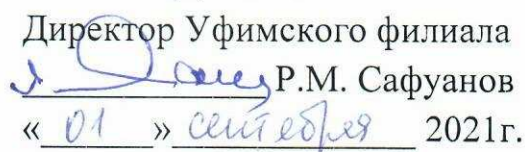 Директор Уфимского филиала
Р.М. Сафуанов
« 01 » сентября 2021г.